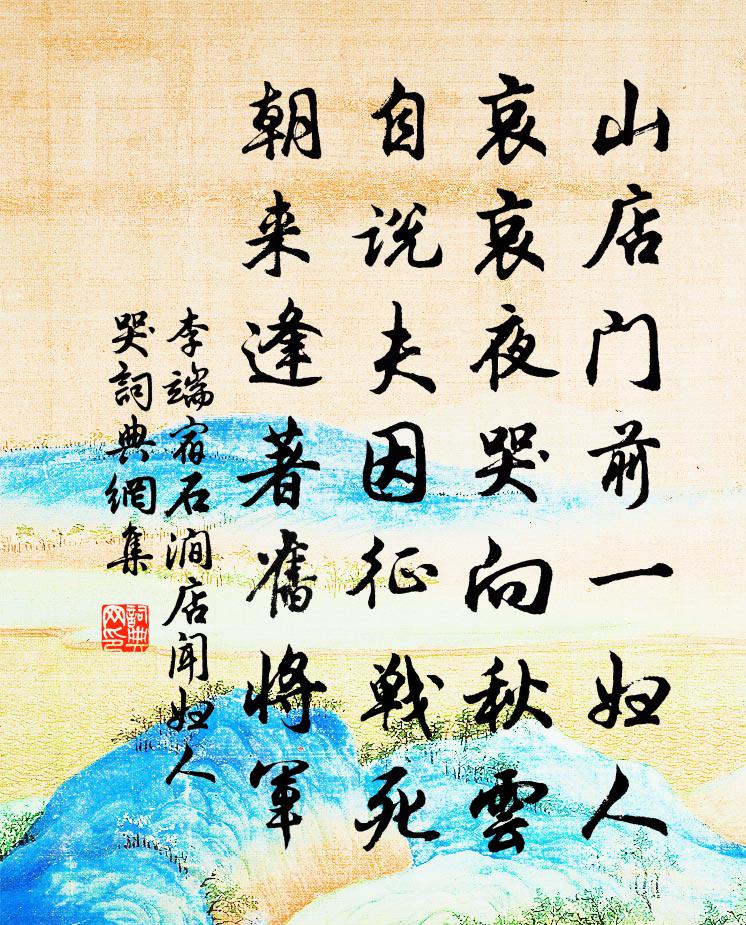 山店门前一妇人
哀哀夜哭向秋雲
自说夫因征戰死
朝来逢著舊將軍
李端宿石澗店聞妇人
哭詞典網集
詞典網印